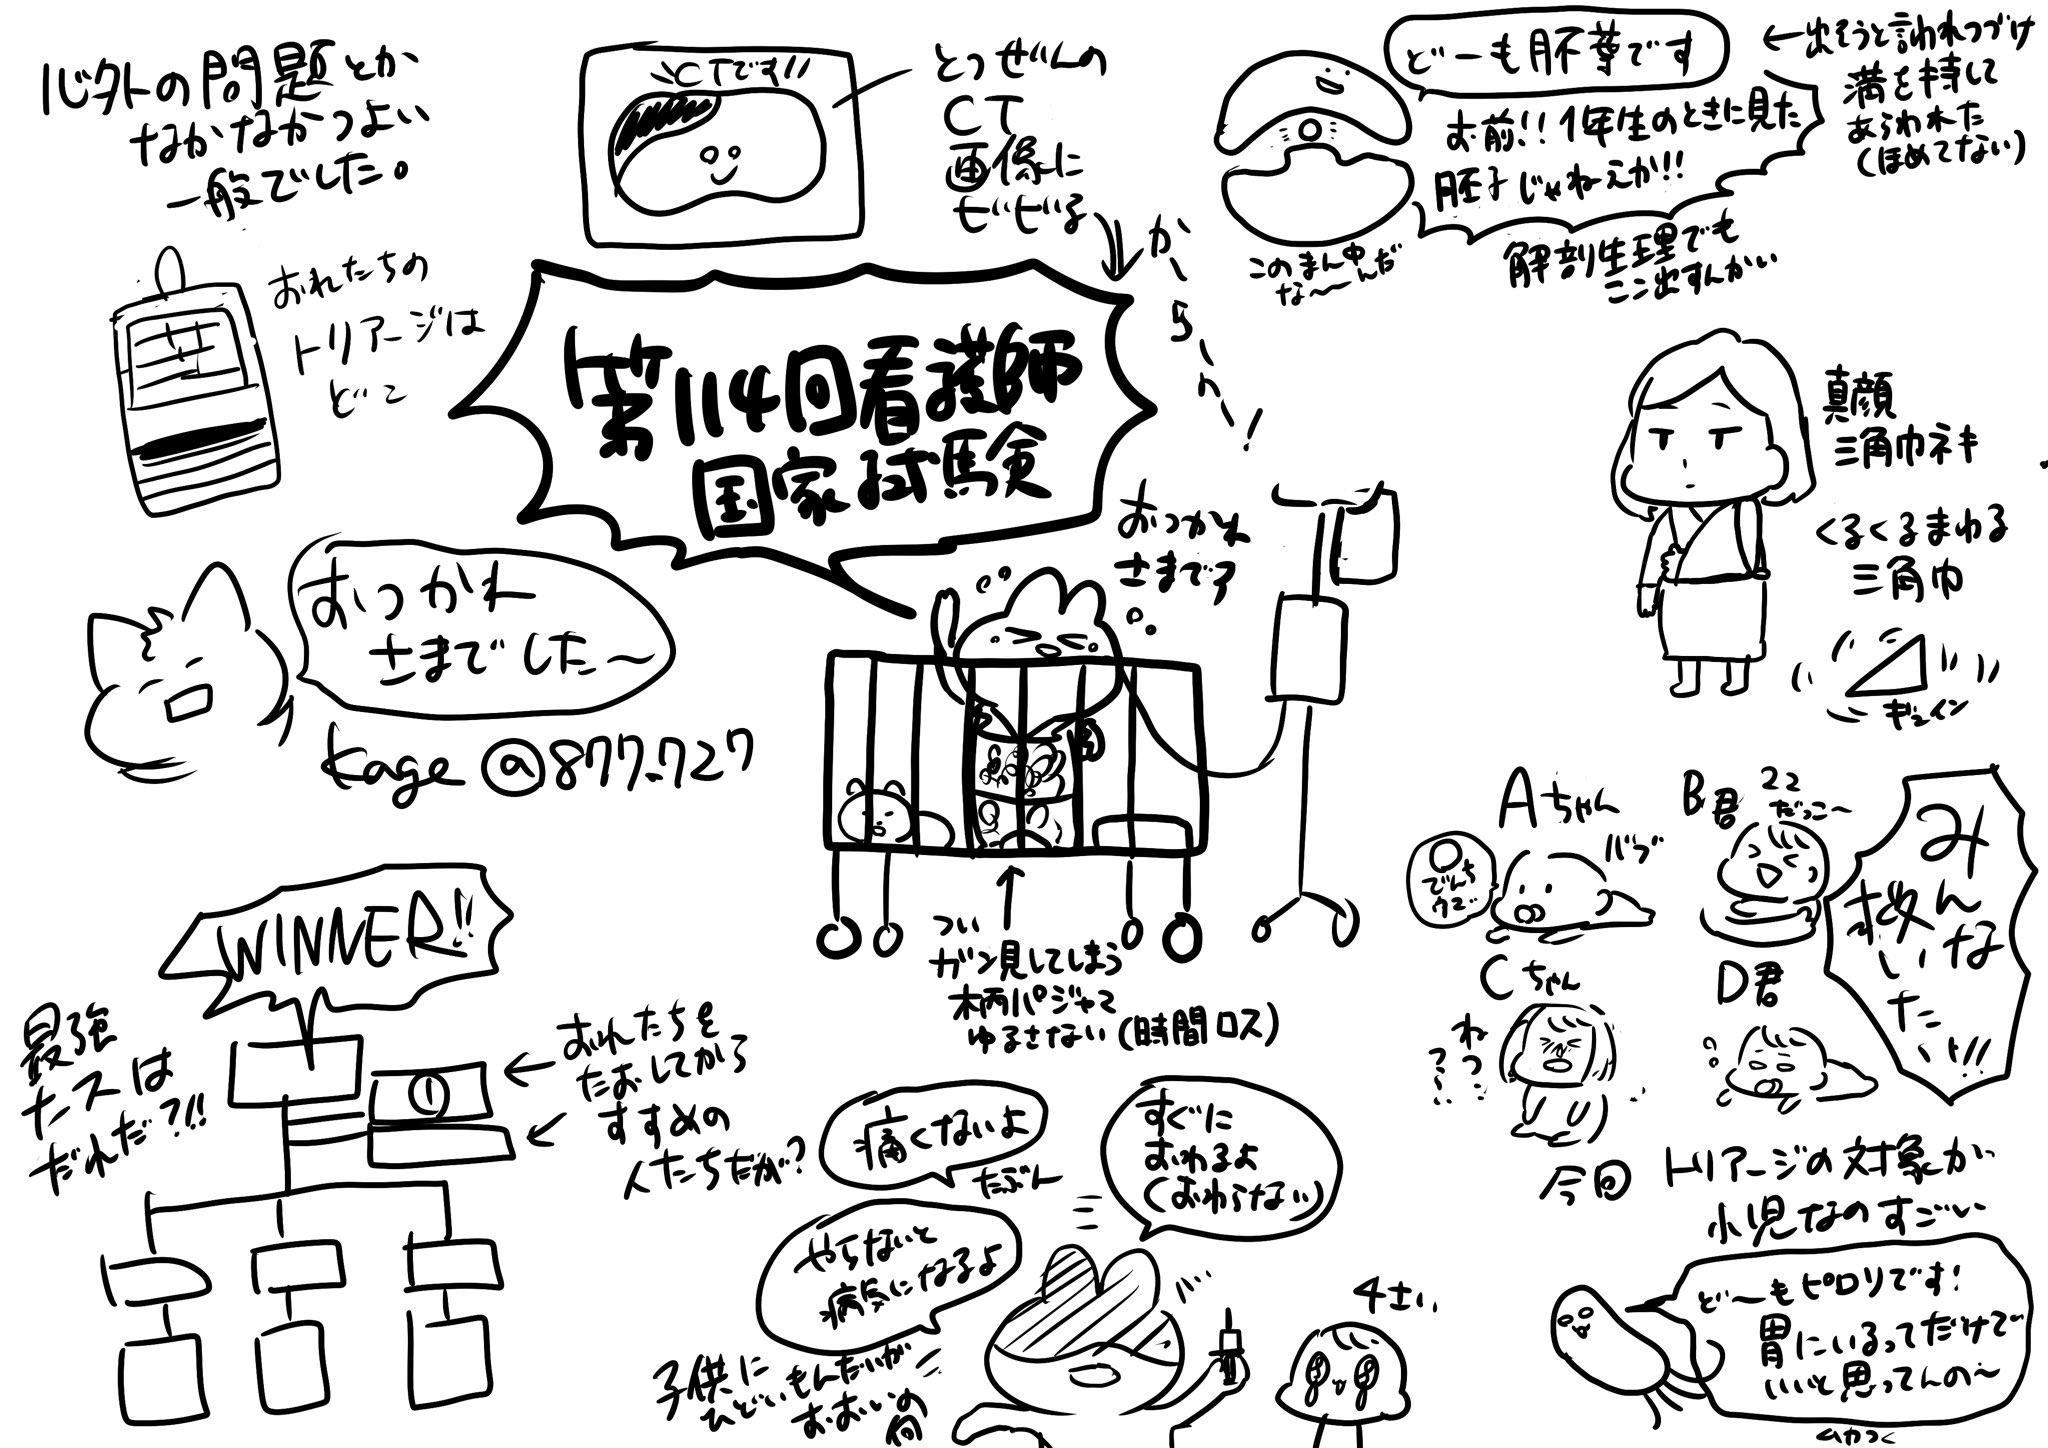 バタトの問題とか
なかなかつよい
一般でした。
CTです!!
とつぜんの
CT
画像に
ビビる
かーらーの!
どーも胚葉です
お前!!1年生のときに見た
胚子じゃねえか!!
このまん中んだ
な〜んだ
解剖生理でも
ここ出すんかい
←出そうと言われつづけ
満を持して
あらわれた
(ほめてない)
おれたちの
トリアージは
どこ
第114回看護師
国家試験
おつかれ
さまです
真顔
三角巾ネキ
くるくるまわる
三角巾
ギュイン
おつかれ
さまでした〜
kage @877_727
つい
ガン見してしまう
柄パジャマ
ゆるさない(時間ロス)
Aちゃん
バブ
でんち
ウマ
B君
ココ
だっこ〜
Cちゃん
ねつ…
D君
みんな
救いたい!!
今回
トリアージの対象が
小児なのすごい
WINNER!!
最強
ナースは
だれだ?!!
①
おれたちを
たおしてから
すすめの
人たちだが?
痛くないよ
たぶん
すぐに
おわるよ
(おわらない)
やらないと
病気になるよ
子供に
ひどいもんだいが
おおいの
何
4さい
ど〜もピロリです!
胃にいるってだけで
いいと思ってんの〜
ムカつく